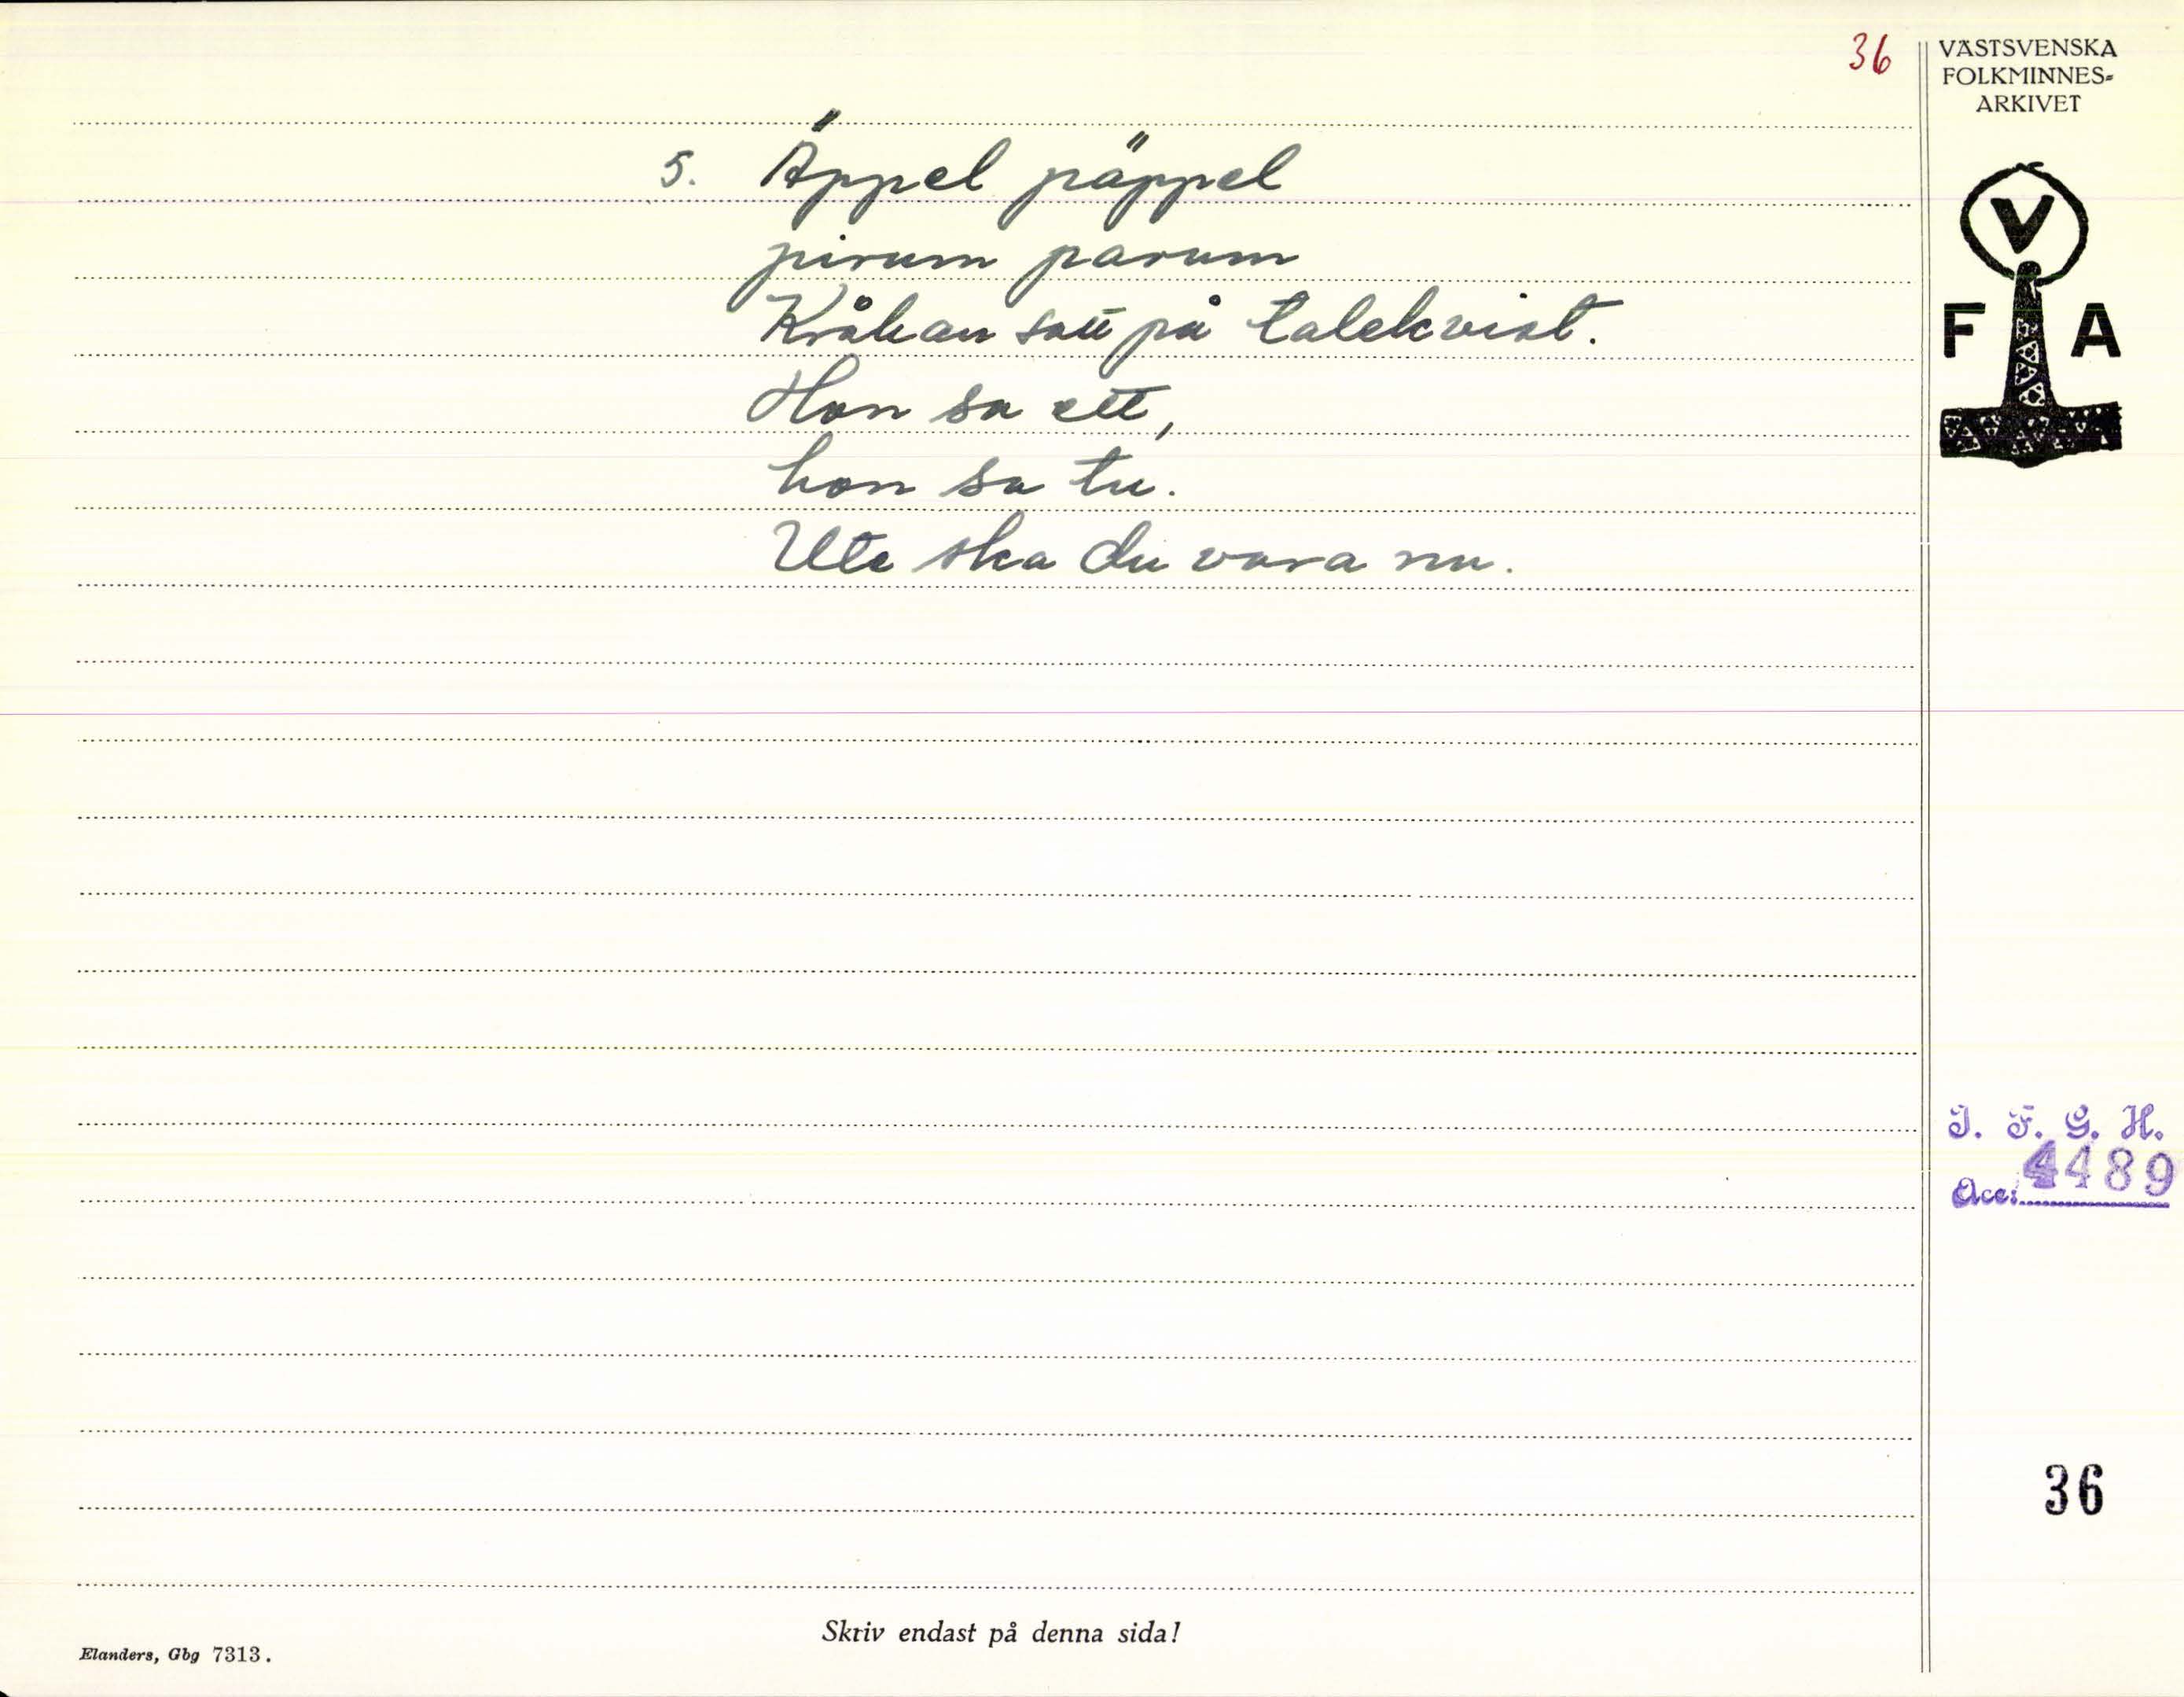 36
VÄSTSVENSKA
FOLKMINNES-
ARKIVET
5. Äppel päppel
pirum parum
Kråkan satt på talekvist.
Hon sa ett,
hon sa tu.
Ute ska du vara nu.
V
F A
I. F. G. H.
Acc: 4489
36
Skriv endast på denna sida!
Elanders, Gbg 7313.